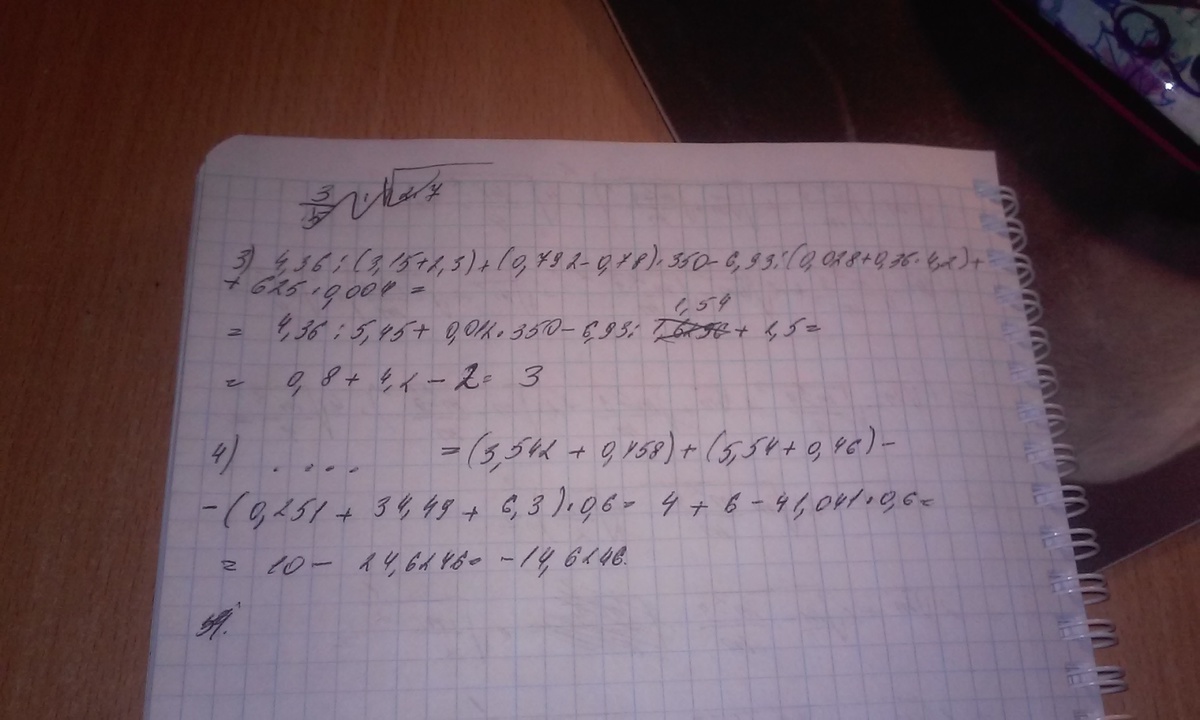 3/5 : √2,7
3) 4,36 : (3,15+2,3) + (0,792-0,78) · 350 - 6,93 : (0,028+0,36·4,2) +
+ 625 · 0,004 =
1,54
= 4,36 : 5,45 + 0,012 · 350 - 6,93 : + 2,5 =
= 0,8 + 4,2 - 2 = 3
4) . . . . = (3,542 + 0,458) + (5,54 + 0,46) -
- (0,251 + 34,49 + 6,3) · 0,6 = 4 + 6 - 41,041 · 0,6 =
= 10 - 24,6246 = -14,6246.